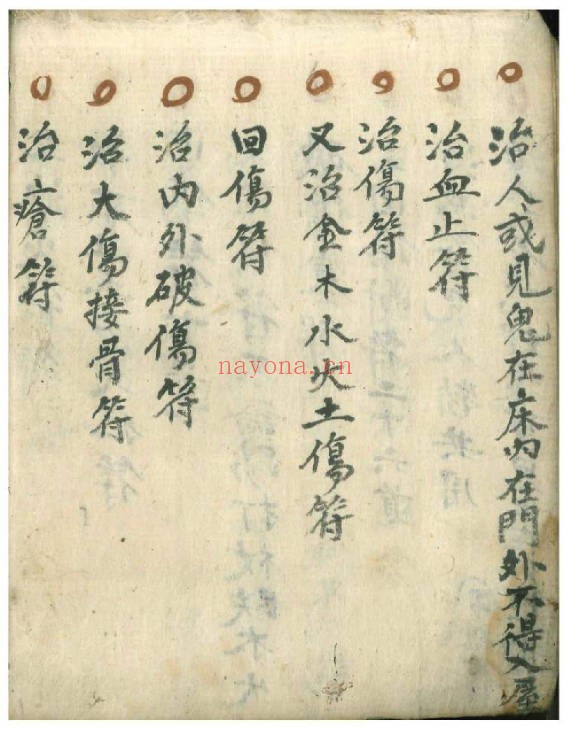 治人或見鬼在床內在門外不得入屋
治血止符
治傷符
又治金木水火土傷符
回傷符
治內外破傷符
治大傷接骨符
治瘡符
nayona.cn